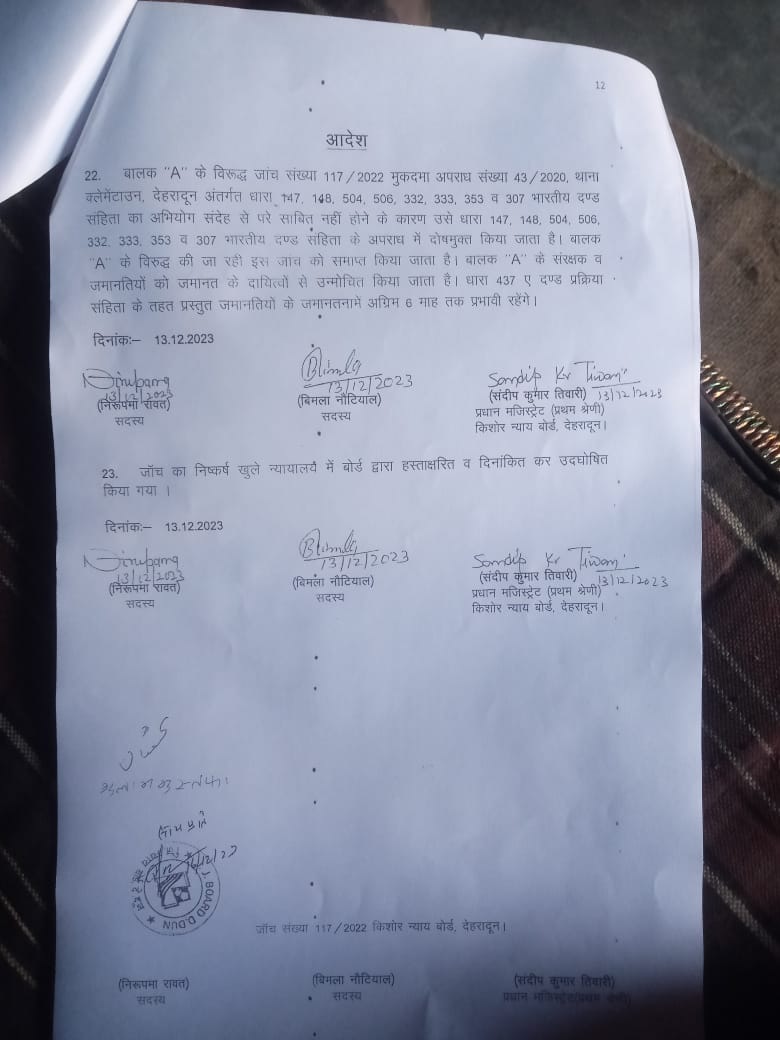 12
आदेश
22. बालक "A" के विरूद्ध जांच संख्या 117/2022 मुकदमा अपराध संख्या 43/2020, थाना
क्लेमेंटाउन, देहरादून अंतर्गत धारा 147, 148, 504, 506, 332, 333, 353 व 307 भारतीय दण्ड
संहिता का अभियोग संदेह से परे साबित नहीं होने के कारण उसे धारा 147, 148, 504, 506,
332, 333, 353 व 307 भारतीय दण्ड संहिता के अपराध में दोषमुक्त किया जाता है। बालक
"A" के विरूद्ध की जा रही इस जांच को समाप्त किया जाता है। बालक "A" के संरक्षक व
जमानतियों को जमानत के दायित्वों से उन्मोचित किया जाता है। धारा 437 ए दण्ड प्रक्रिया
संहिता के तहत प्रस्तुत जमानतियों के जमानतनामे अग्रिम 6 माह तक प्रभावी रहेंगे।
दिनांकः– 13.12.2023
Nirupama Bimla Sandip Kr Tiwari
13/12/2023 13/12/2023 13/12/2023
(निरूपमा रावत) (बिमला नौटियाल) (संदीप कुमार तिवारी)
सदस्य सदस्य प्रधान मजिस्ट्रेट (प्रथम श्रेणी)
किशोर न्याय बोर्ड, देहरादून।
23. जॉच का निष्कर्ष खुले न्यायालय में बोर्ड द्वारा हस्ताक्षरित व दिनांकित कर उदघोषित
किया गया ।
दिनांकः– 13.12.2023
Nirupama Bimla Sandip Kr Tiwari
13/12/2023 13/12/2023 13/12/2023
(निरूपमा रावत) (बिमला नौटियाल) (संदीप कुमार तिवारी)
सदस्य सदस्य प्रधान मजिस्ट्रेट (प्रथम श्रेणी)
किशोर न्याय बोर्ड, देहरादून।
J. BOARD D.DUN
जॉच संख्या 117/2022 किशोर न्याय बोर्ड, देहरादून।
(निरूपमा रावत) (बिमला नौटियाल) (संदीप कुमार तिवारी)
सदस्य सदस्य प्रधान मजिस्ट्रेट(प्रथम श्रेणी)